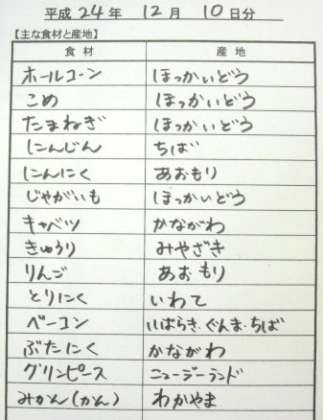 平成 24 年 12 月 10 日分
【主な食材と産地】
食材 産地
ホールコーン ほっかいどう
こめ ほっかいどう
たまねぎ ほっかいどう
にんじん ちば
にんにく あおもり
じゃがいも ほっかいどう
キャベツ かながわ
きゅうり みやざき
りんご あおもり
とりにく いわて
ベーコン いばらき・ぐんま・ちば
ぶたにく かながわ
グリンピース ニュージーランド
みかん(かん) わかやま